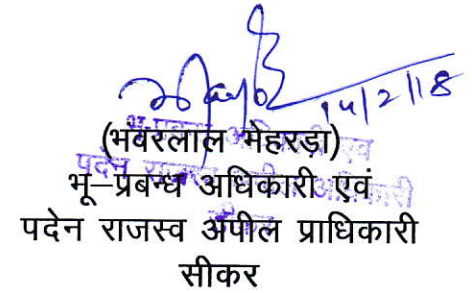 14/2/18
(भंवरलाल मेहरड़ा)
भू–प्रबन्ध अधिकारी एवं
पदेन राजस्व अपील प्राधिकारी
सीकर